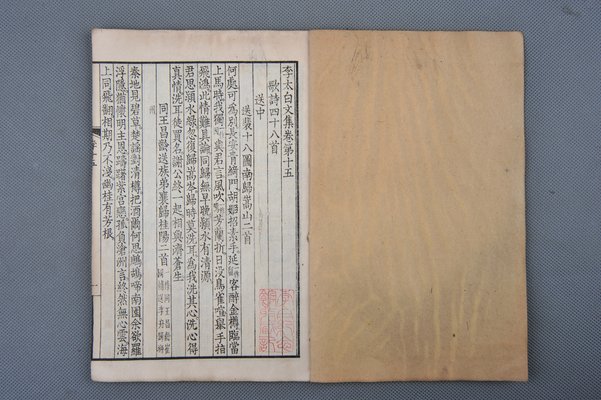 李太白文集卷第十五
歌詩四十八首
送中
送裴十八圖南歸嵩山二首
何處可為別長安青綺門胡姬招素手延客醉金樽臨當
上馬時我獨與君言風吹芳蘭折日沒鳥雀喧舉手指
飛鴻此情難具論同歸無早晚潁水有清源
君思潁水綠忽復歸嵩岑歸時莫洗耳為我洗其心洗心得
真情洗耳徒買名謝公終一起相與濟蒼生
同王昌齡送族弟襄歸桂陽二首
秦地見碧草楚謠對清樽把酒爾何思鷓鴣啼南園余欲羅
浮隱猶懷明主恩躊躇紫宮戀孤負滄洲言終然無心雲海
上同飛翻相期乃不淺幽桂有芳根